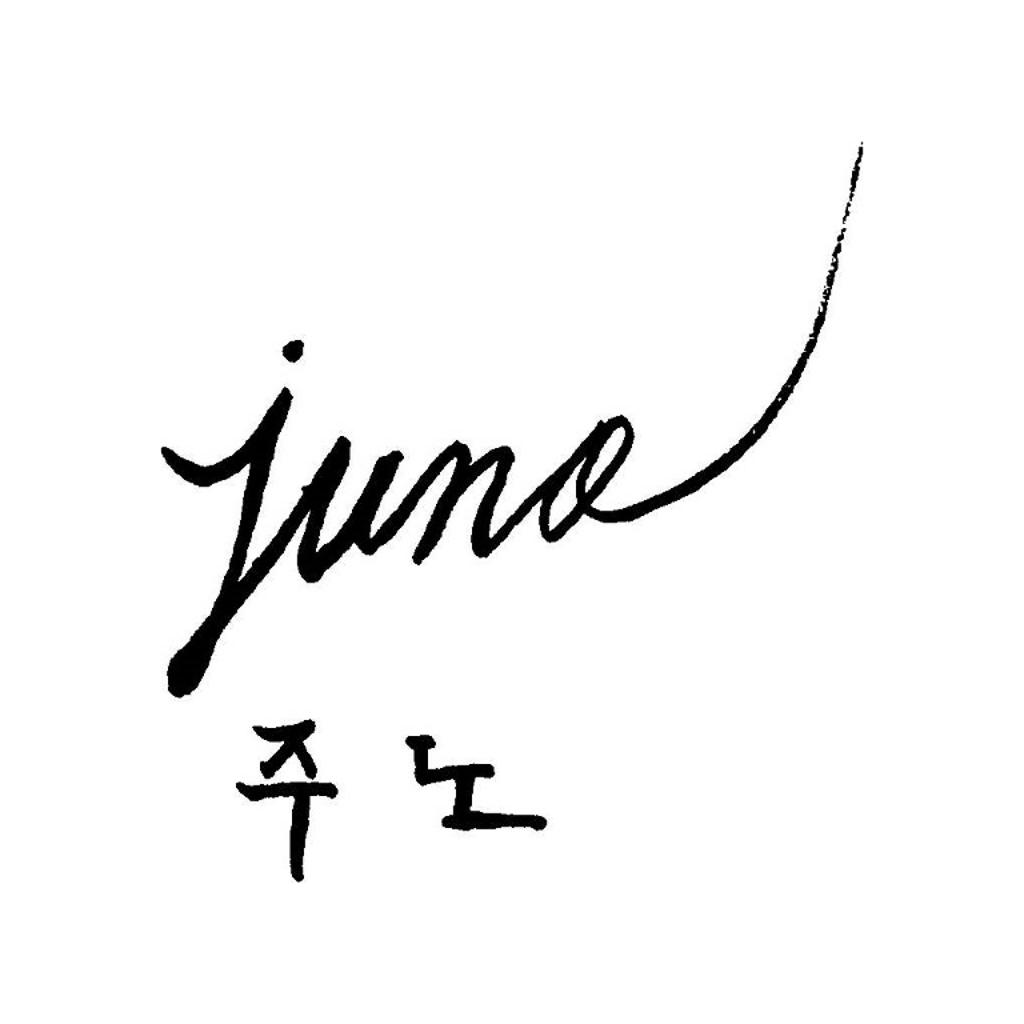 juno
주노